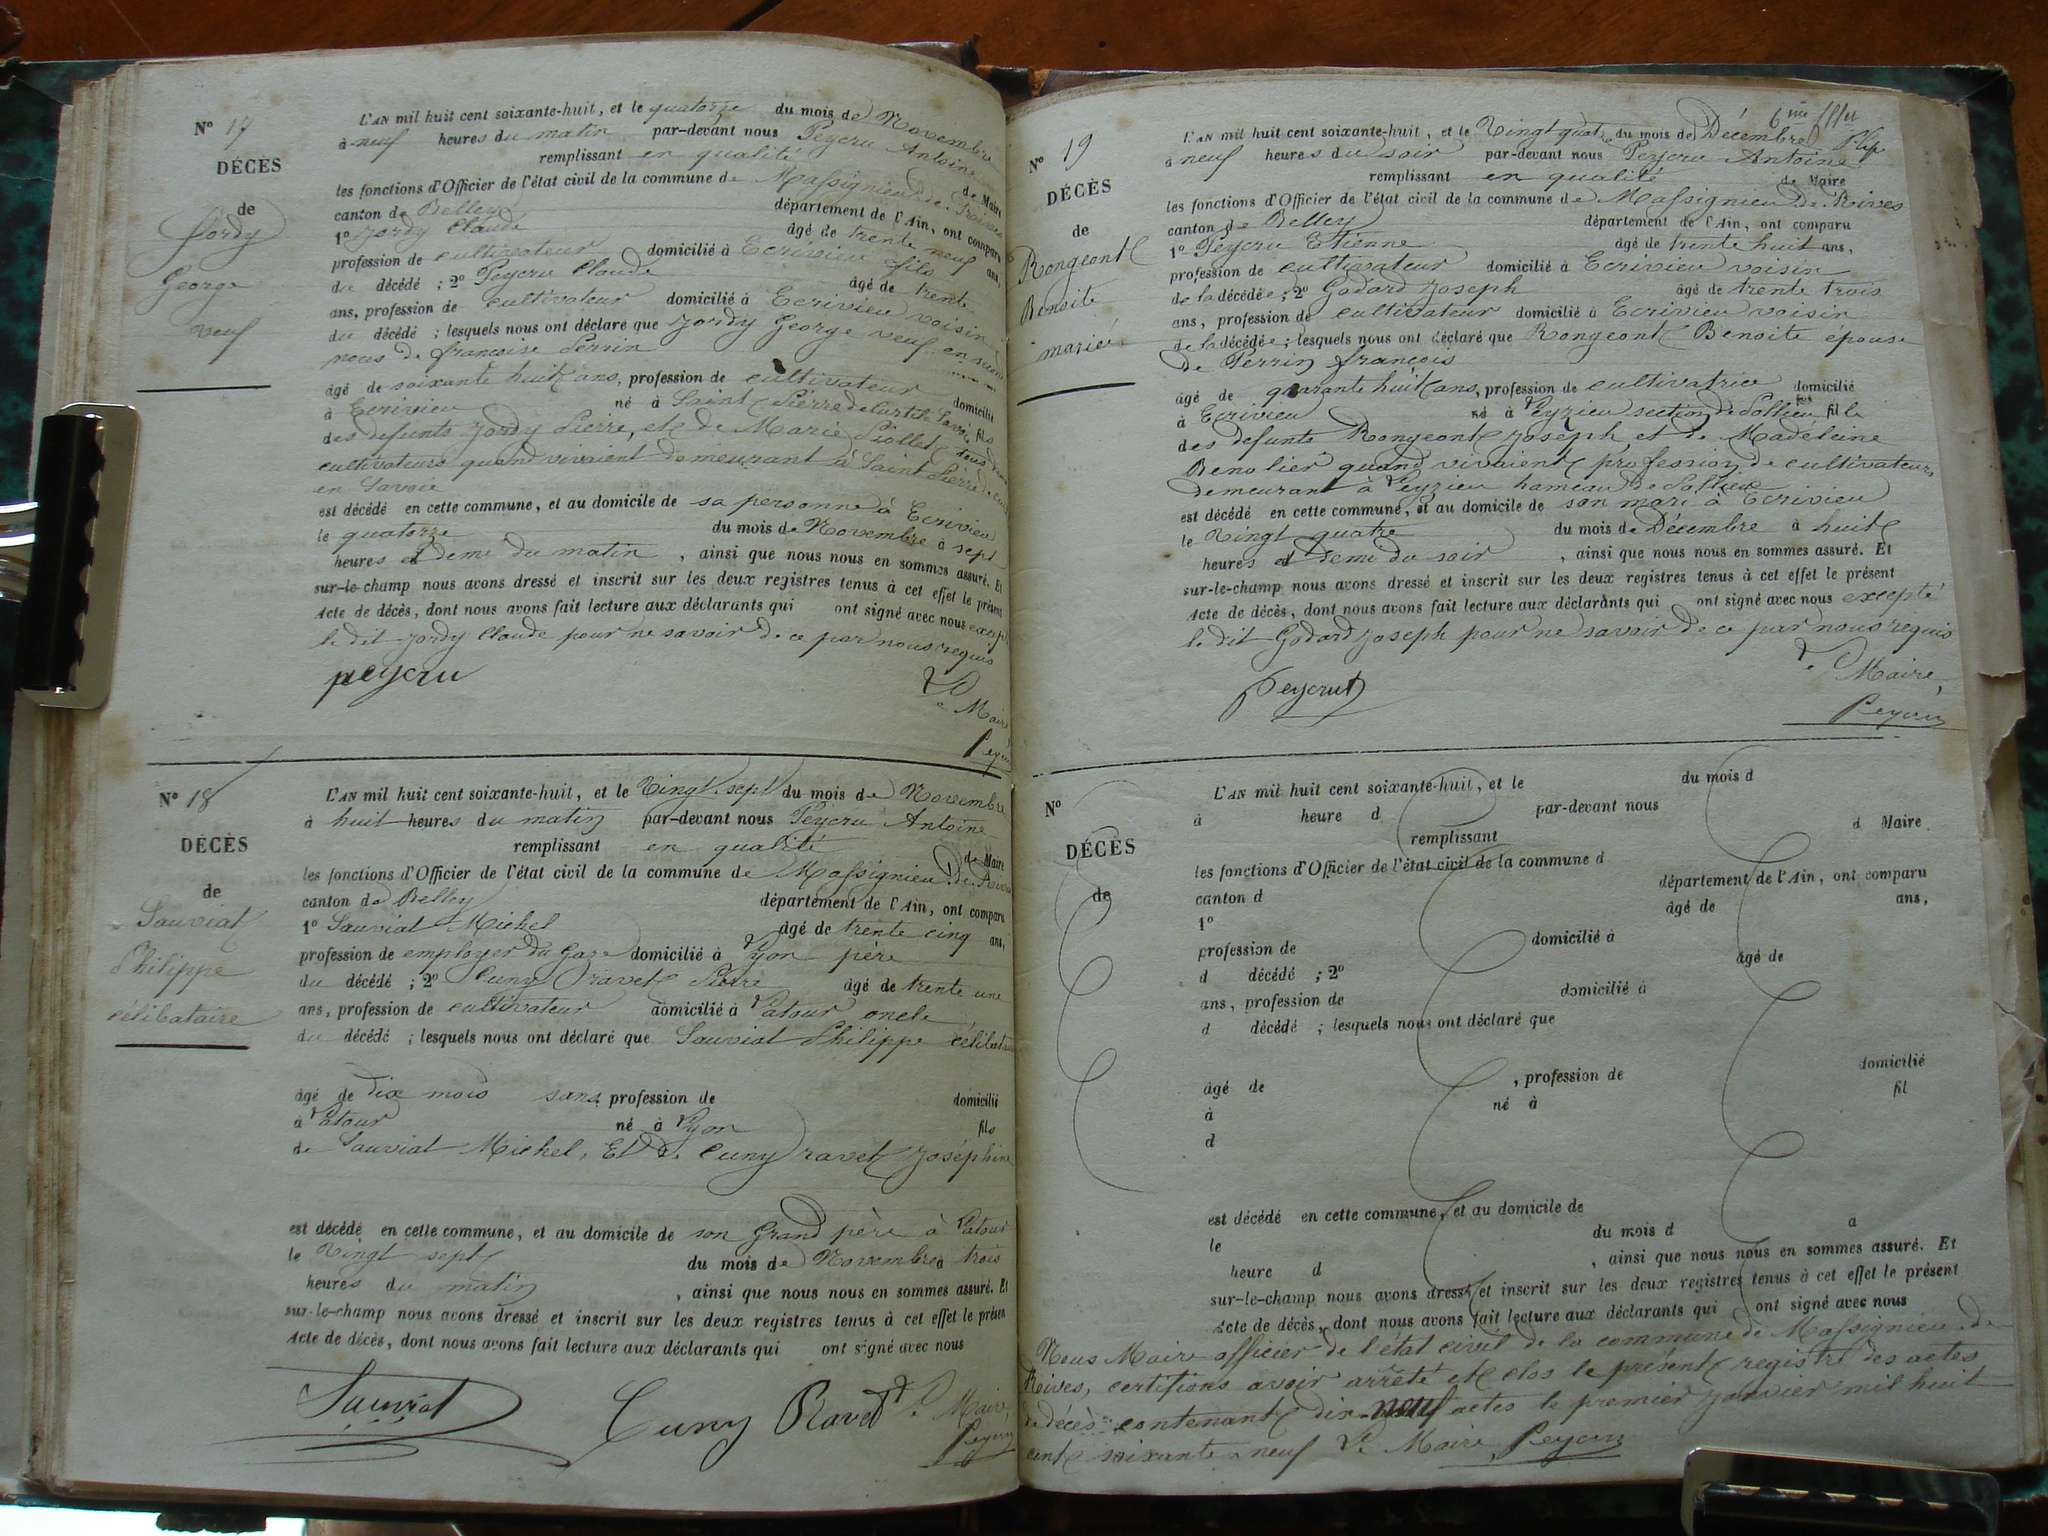 Nº 17
DÉCÈS
de
Jordy
George
veuf
L'AN mil huit cent soixante-huit, et le quatorze du mois de Novembre
à neuf heures du matin par-devant nous Peycru Antoine
remplissant en qualité de Maire
les fonctions d'Officier de l'état civil de la commune de Massignieu de Rives
canton de Belley département de l'Ain, ont comparu
1º Jordy Claude âgé de trente neuf ans,
profession de cultivateur domicilié à Ecrivieu fils
du décédé ; 2º Peycru Claude âgé de trente
ans, profession de cultivateur domicilié à Ecrivieu voisin
du décédé ; lesquels nous ont déclaré que Jordy George veuf en
noces de françoise Perrin
âgé de soixante huit ans, profession de cultivateur domicilié
à Ecrivieu né à Saint Pierre de Savoie fils
des defunts Jordy Pierre, et de Marie Piollet tous deux
cultivateurs quand vivaient demeurant à Saint Pierre de
en Savoie
est décédé en cette commune, et au domicile de sa personne à Ecrivieu
le quatorze du mois de Novembre à sept
heures et demi du matin , ainsi que nous nous en sommes assuré. Et
sur-le-champ nous avons dressé et inscrit sur les deux registres tenus à cet effet le présent
Acte de décès, dont nous avons fait lecture aux déclarants qui ont signé avec nous excepté
le dit Jordy Claude pour ne savoir de ce par nous requis
peycru
Le Maire
Peycru
Nº 18
DÉCÈS
de
Sauviat
Philippe
célibataire
L'AN mil huit cent soixante-huit, et le Vingt sept du mois de Novembre
à huit heures du matin par-devant nous Peycru Antoine
remplissant en qualité de Maire
les fonctions d'Officier de l'état civil de la commune de Massignieu de Rives
canton de Belley département de l'Ain, ont comparu
1º Sauviat Michel âgé de trente cinq ans,
profession de employer du Gaze domicilié à Lyon père
du décédé ; 2º Cuny ravet Pierre âgé de trente une
ans, profession de cultivateur domicilié à Latour oncle
du décédé ; lesquels nous ont déclaré que Sauviat Philippe célibataire
âgé de dix mois sans profession de domicilié
à Latour né à Lyon fils
de Sauviat Michel, Et de Cuny ravet Joséphine
est décédé en cette commune, et au domicile de son Grand père à Latour
le Vingt sept du mois de Novembre à trois
heures du matin , ainsi que nous nous en sommes assuré. Et
sur-le-champ nous avons dressé et inscrit sur les deux registres tenus à cet effet le présent
Acte de décès, dont nous avons fait lecture aux déclarants qui ont signé avec nous
Sauviat
Cuny Ravet
Le Maire
Peycru
6me
Nº 19
DÉCÈS
de
Rongeont
Benoite
mariée
L'AN mil huit cent soixante-huit, et le Vingt quatre du mois de Décembre
à neuf heures du soir par-devant nous Peycru Antoine
remplissant en qualité de Maire
les fonctions d'Officier de l'état civil de la commune de Massignieu de Rives
canton de Belley département de l'Ain, ont comparu
1º Peycru Etienne âgé de trente huit ans,
profession de cultivateur domicilié à Ecrivieu voisin
de la décédée ; 2º Godard Joseph âgé de trente trois
ans, profession de cultivateur domicilié à Ecrivieu voisin
de la décédée ; lesquels nous ont déclaré que Rongeont Benoite épouse
de Perrin françois
âgé de quarante huit ans, profession de cultivatrice domicilié
à Ecrivieu né à Peyzieu section de Pollieu fille
des defunts Rongeont Joseph, et de Madéleine
Benolier quand vivaient profession de cultivateurs
demeurant à Peyzieu hameau de Pollieu
est décédé en cette commune, et au domicile de son mari à Ecrivieu
le Vingt quatre du mois de Décembre à huit
heures et demi du soir , ainsi que nous nous en sommes assuré. Et
sur-le-champ nous avons dressé et inscrit sur les deux registres tenus à cet effet le présent
Acte de décès, dont nous avons fait lecture aux déclarants qui ont signé avec nous excepté
le dit Godard Joseph pour ne savoir de ce par nous requis
Peycru
Le Maire,
Peycru
Nº
DÉCÈS
de
L'AN mil huit cent soixante-huit, et le du mois d
à heure d par-devant nous
remplissant d Maire
les fonctions d'Officier de l'état civil de la commune d
canton d département de l'Ain, ont comparu
1º âgé de ans,
profession de domicilié à
d décédé ; 2º âgé de
ans, profession de domicilié à
d décédé ; lesquels nous ont déclaré que
âgé de , profession de domicilié
à né à fil
d
est décédé en cette commune, et au domicile de
le du mois d à
heure d , ainsi que nous nous en sommes assuré. Et
sur-le-champ nous avons dressé et inscrit sur les deux registres tenus à cet effet le présent
Acte de décès, dont nous avons fait lecture aux déclarants qui ont signé avec nous
Nous Maire officier de l'état civil de la commune de Massignieu de
Rives, certifions avoir arrêté et clos le présent registre des actes
de décès contenant dix-neuf actes le premier Janvier mil huit
cent soixante neuf Le Maire, Peycru